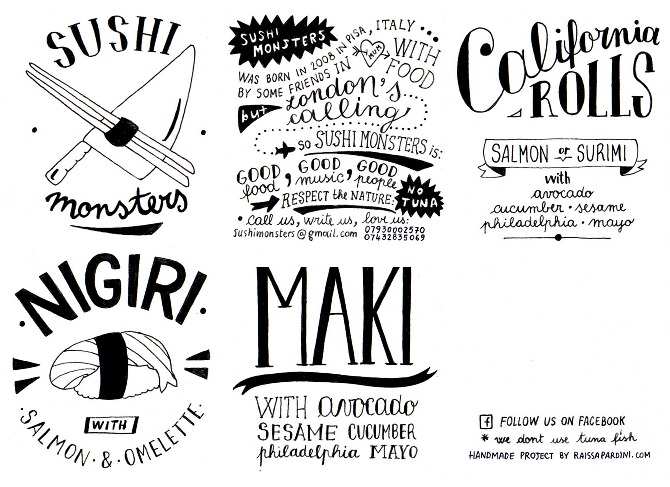 SUSHI
monsters
SUSHI
MONSTERS
WAS BORN IN 2008 IN PISA, ITALY
BY SOME FRIENDS IN
MUM
WITH
FOOD
but London's
calling
so SUSHI MONSTERS is:
GOOD food, GOOD music, GOOD people
RESPECT the NATURE:
NO
TUNA
• call us, write us, love us:
sushimonsters@gmail.com
07930002570
07432835069
California
ROLLS
SALMON or SURIMI
with
avocado
cucumber • sesame
philadelphia • mayo
• NIGIRI •
WITH
• SALMON • & • OMELETTE •
MAKI
WITH avocado
SESAME CUCUMBER
philadelphia MAYO
f FOLLOW US ON FACEBOOK
* we dont use tuna fish
HANDMADE PROJECT BY RAISSAPARDINI.COM